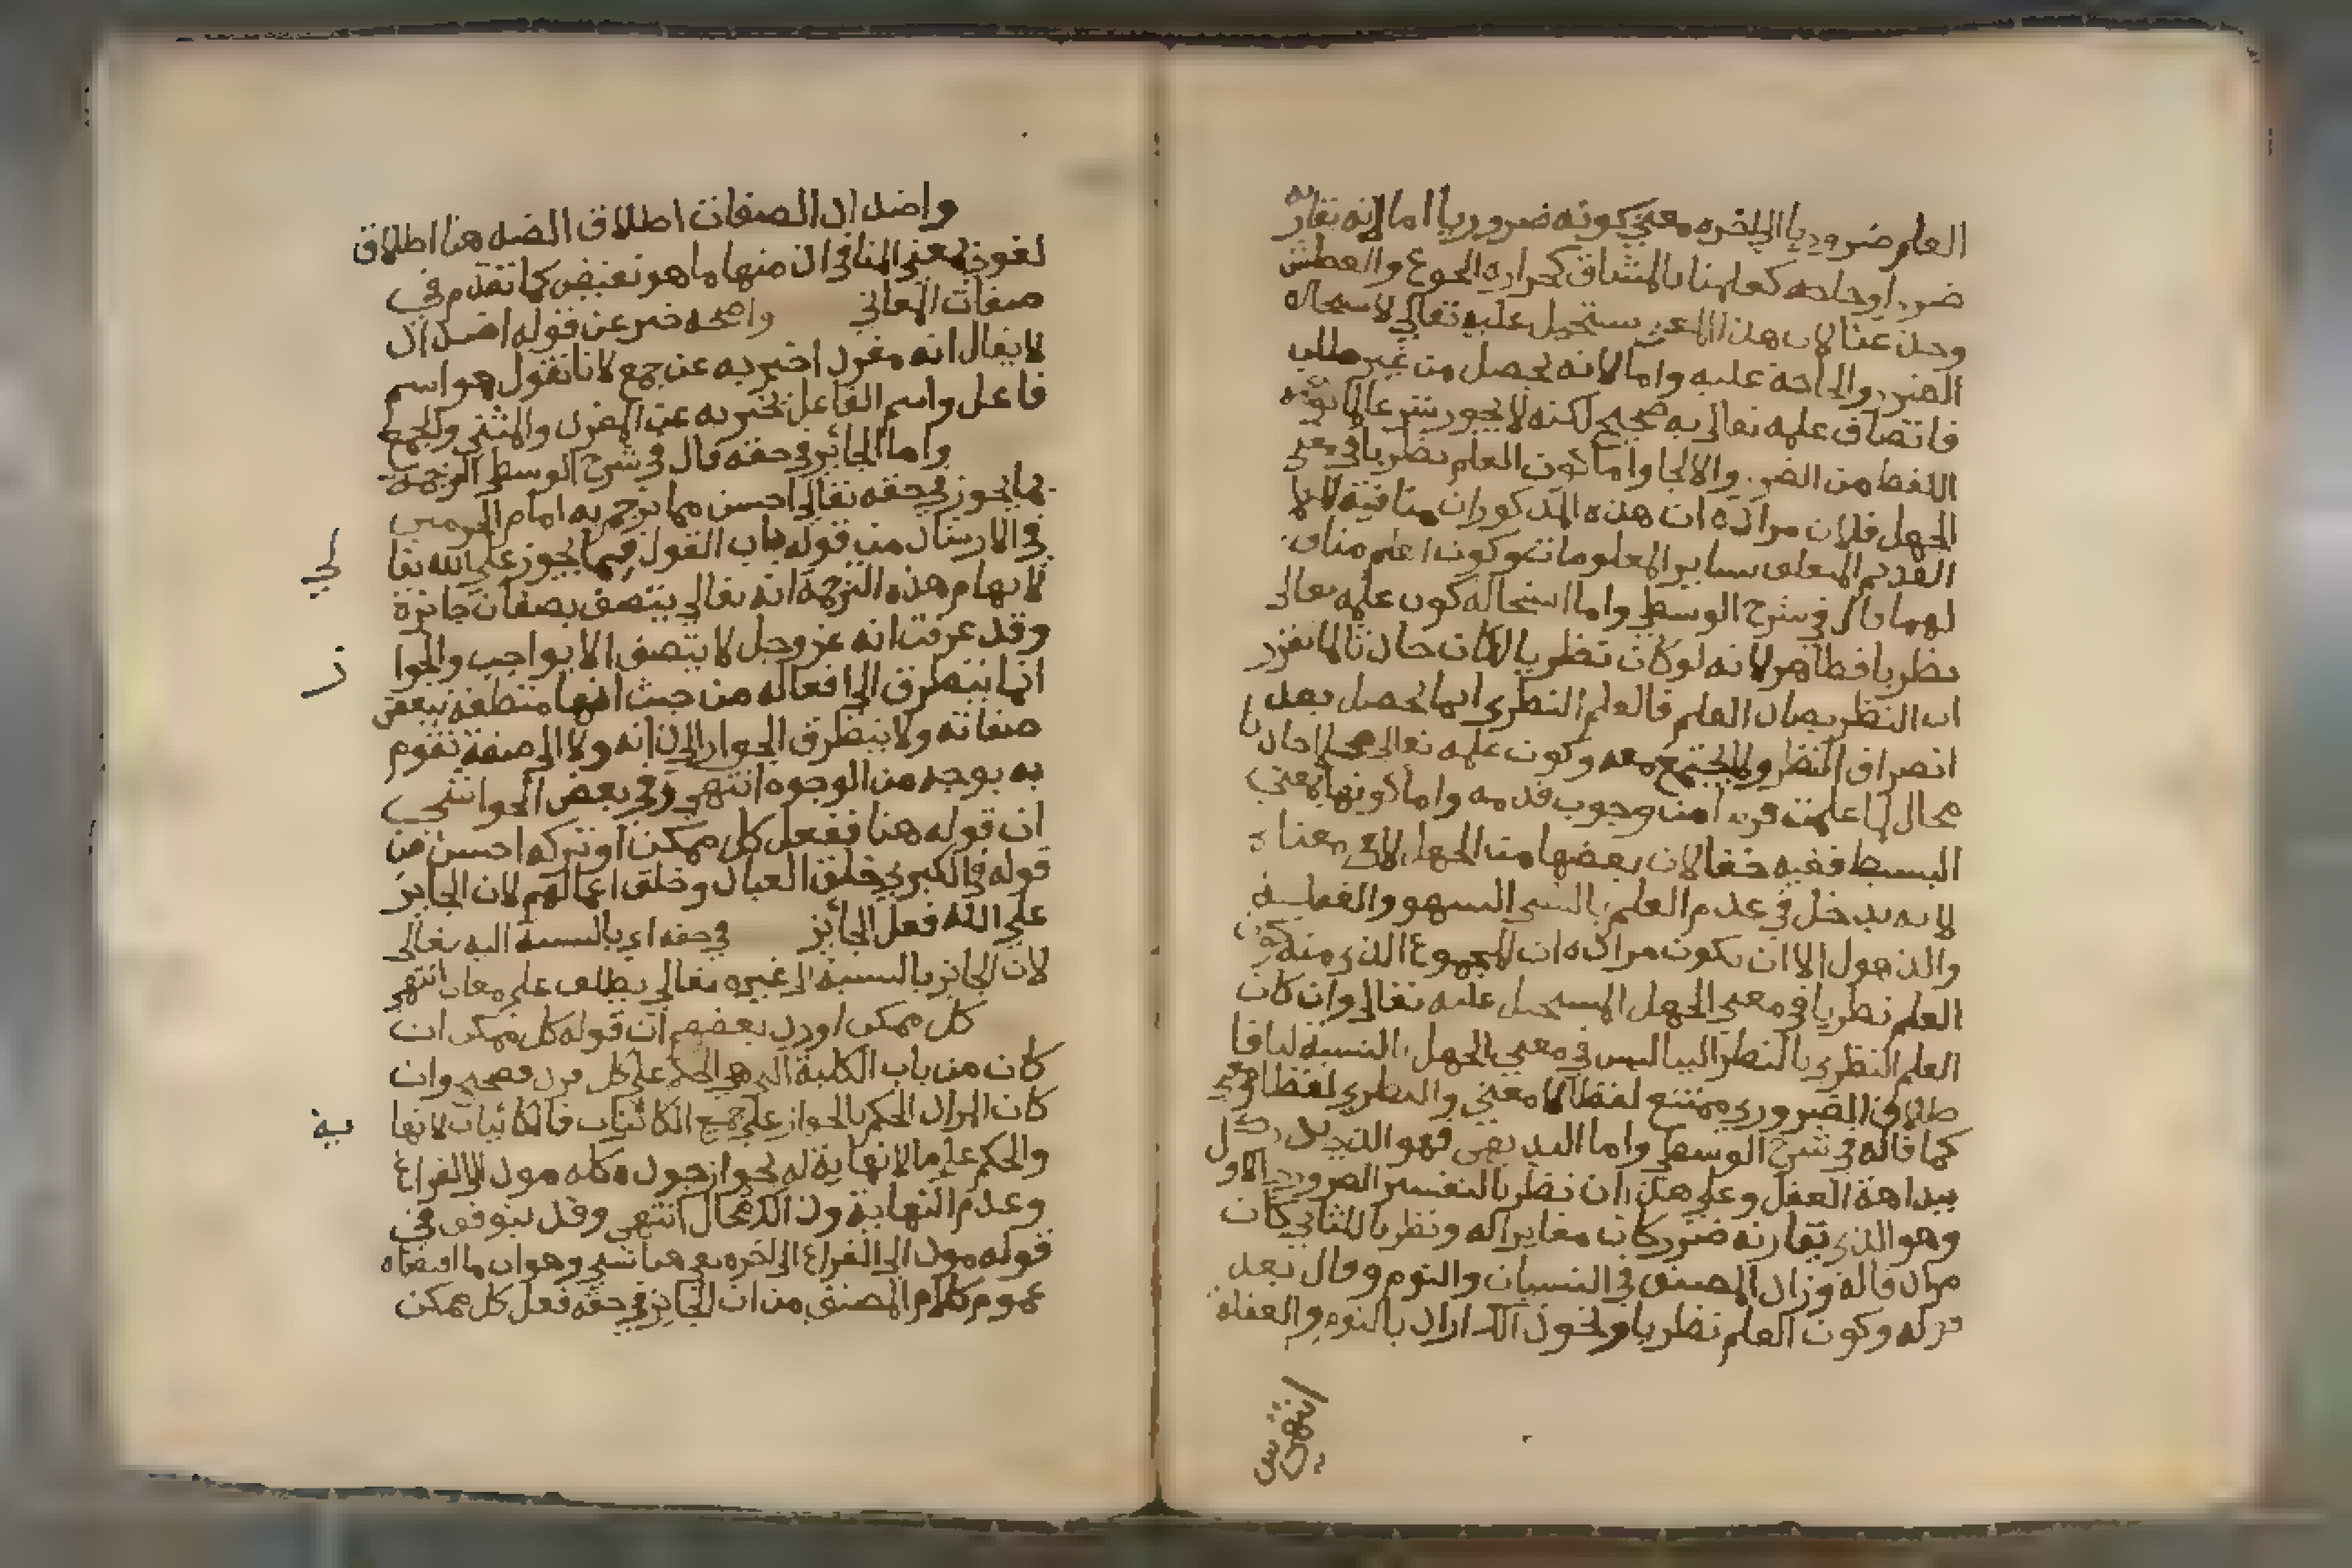 العلم ضروريا الي اخره معني كونه ضروريا اما لانه تقارنه
ضرر او حاجه كعلمنا بالمشاق كحراره الجوع والعطش
وحد عنا لان هذا المعني يستحيل عليه تعالي لاستحاله
الضرر والحاجة عليه واما لانه يحصل من غير طلب
فاتصاف علمه تعالي به صحيح لكنه لا يجوز شرعا لما يوهمه
اللفظ من الضرر والالجا واما كون العلم نظريا في معني
الجهل فلان مراده ان هذه المذكورات منافية للعلم
القديم المتعلق بساير المعلومات وكون العلم مناف
لهما قال في شرح الوسطي واما استحاله كون علمه تعالي
نظريا فظاهر لانه لو كان نظريا لكان حادثا لما تقرر
ان النظر يضاد العلم فالعلم النظري انما يحصل بعد
انصراف النظر ولا يجتمع معه وكون علمه تعالي حادثا
محال لما علمت قريبا من وجوب قدمه واما كونها بمعني
البسيط ففيه خفا لان بعضها من الجهل لا في معناه
لانه يدخل في عدم العلم بالشي السهو والغفلة
والذهول الا ان يكون مراده ان المجموع الذي منه كون
العلم نظريا في معني الجهل المستحيل عليه تعالي وان كان
العلم النظري بالنظر الينا ليس في معني الجهل بالنسبة لنا فا
طلاق الضروري ممتنع لفظا لا معني والنظري لفظا ومعني
كما قاله في شرح الوسطي واما البديهي فهو الذي يدرك
ببداهة العقل وعلي هذا ان نظر بالتفسير الضروري الاول
وهو الذي تقارنه ضرر كان مغايرا له ونظريا للثاني كان
مرادفا له وزاد المصنف في النسيان والنوم وقال بعد
قوله وكون العلم نظريا ونحو ذلك اراد بالنوم والغفلة
انتهي س
واضداد الصفات اطلاق الضد هنا اطلاق
لغوي بمعني المنافي اذ منها ما هو نقيض كما تقدم في
صفات المعاني واضحه خبر عن قوله اضداد
لا يقال انه مفرد اخبر به عن جمع لانا نقول هو اسم
فاعل واسم الفاعل يخبر به عن المفرد والمثني والجمع
واما الجائز في حقه قال في شرح الوسطي الترجمة
بما يجوز في حقه تعالي احسن مما ترجم به امام الحرمين
في الارشاد من قوله باب القول فيما يجوز علي الله تعالي
لايهام هذه الترجمة انه تعالي يتصف بصفات جائزة
وقد عرفت انه عز وجل لا يتصف الا بواجب والجواز
انما يتطرق الي افعاله من حيث انها متعلقة ببعض
صفاته ولا يتطرق الجواز الي ذاته ولا الي صفة تقوم
به بوجه من الوجوه انتهي وفي بعض الحواشي
ان قوله هنا ففعل كل ممكن او تركه احسن من
قوله في الكبري خلق العباد وخلق اعمالهم لان الجايز
علي الله فعل الجائز في حقه اي بالنسبة اليه تعالي
لان الجائز بالنسبة الي غيره تعالي يطلق علي معان انتهي
كل ممكن اورد بعضهم ان قوله كل ممكن ان
كان من باب الكلية التي هي الحكم علي كل فرد فصحيح وان
كان المراد الحكم بالجواز علي جميع الكائنات فالكائنات لا نهاية
والحكم علي ما لا نهاية له بجواز دخوله كله مود الي الفراغ
وعدم النهاية وذلك محال انتهي وقد يتوقف في
قوله مود الي الفراغ الي اخره بقي هنا شي وهو ان ما اقتضاه
عموم كلام المصنف من ان الجايز في حقه فعل كل ممكن